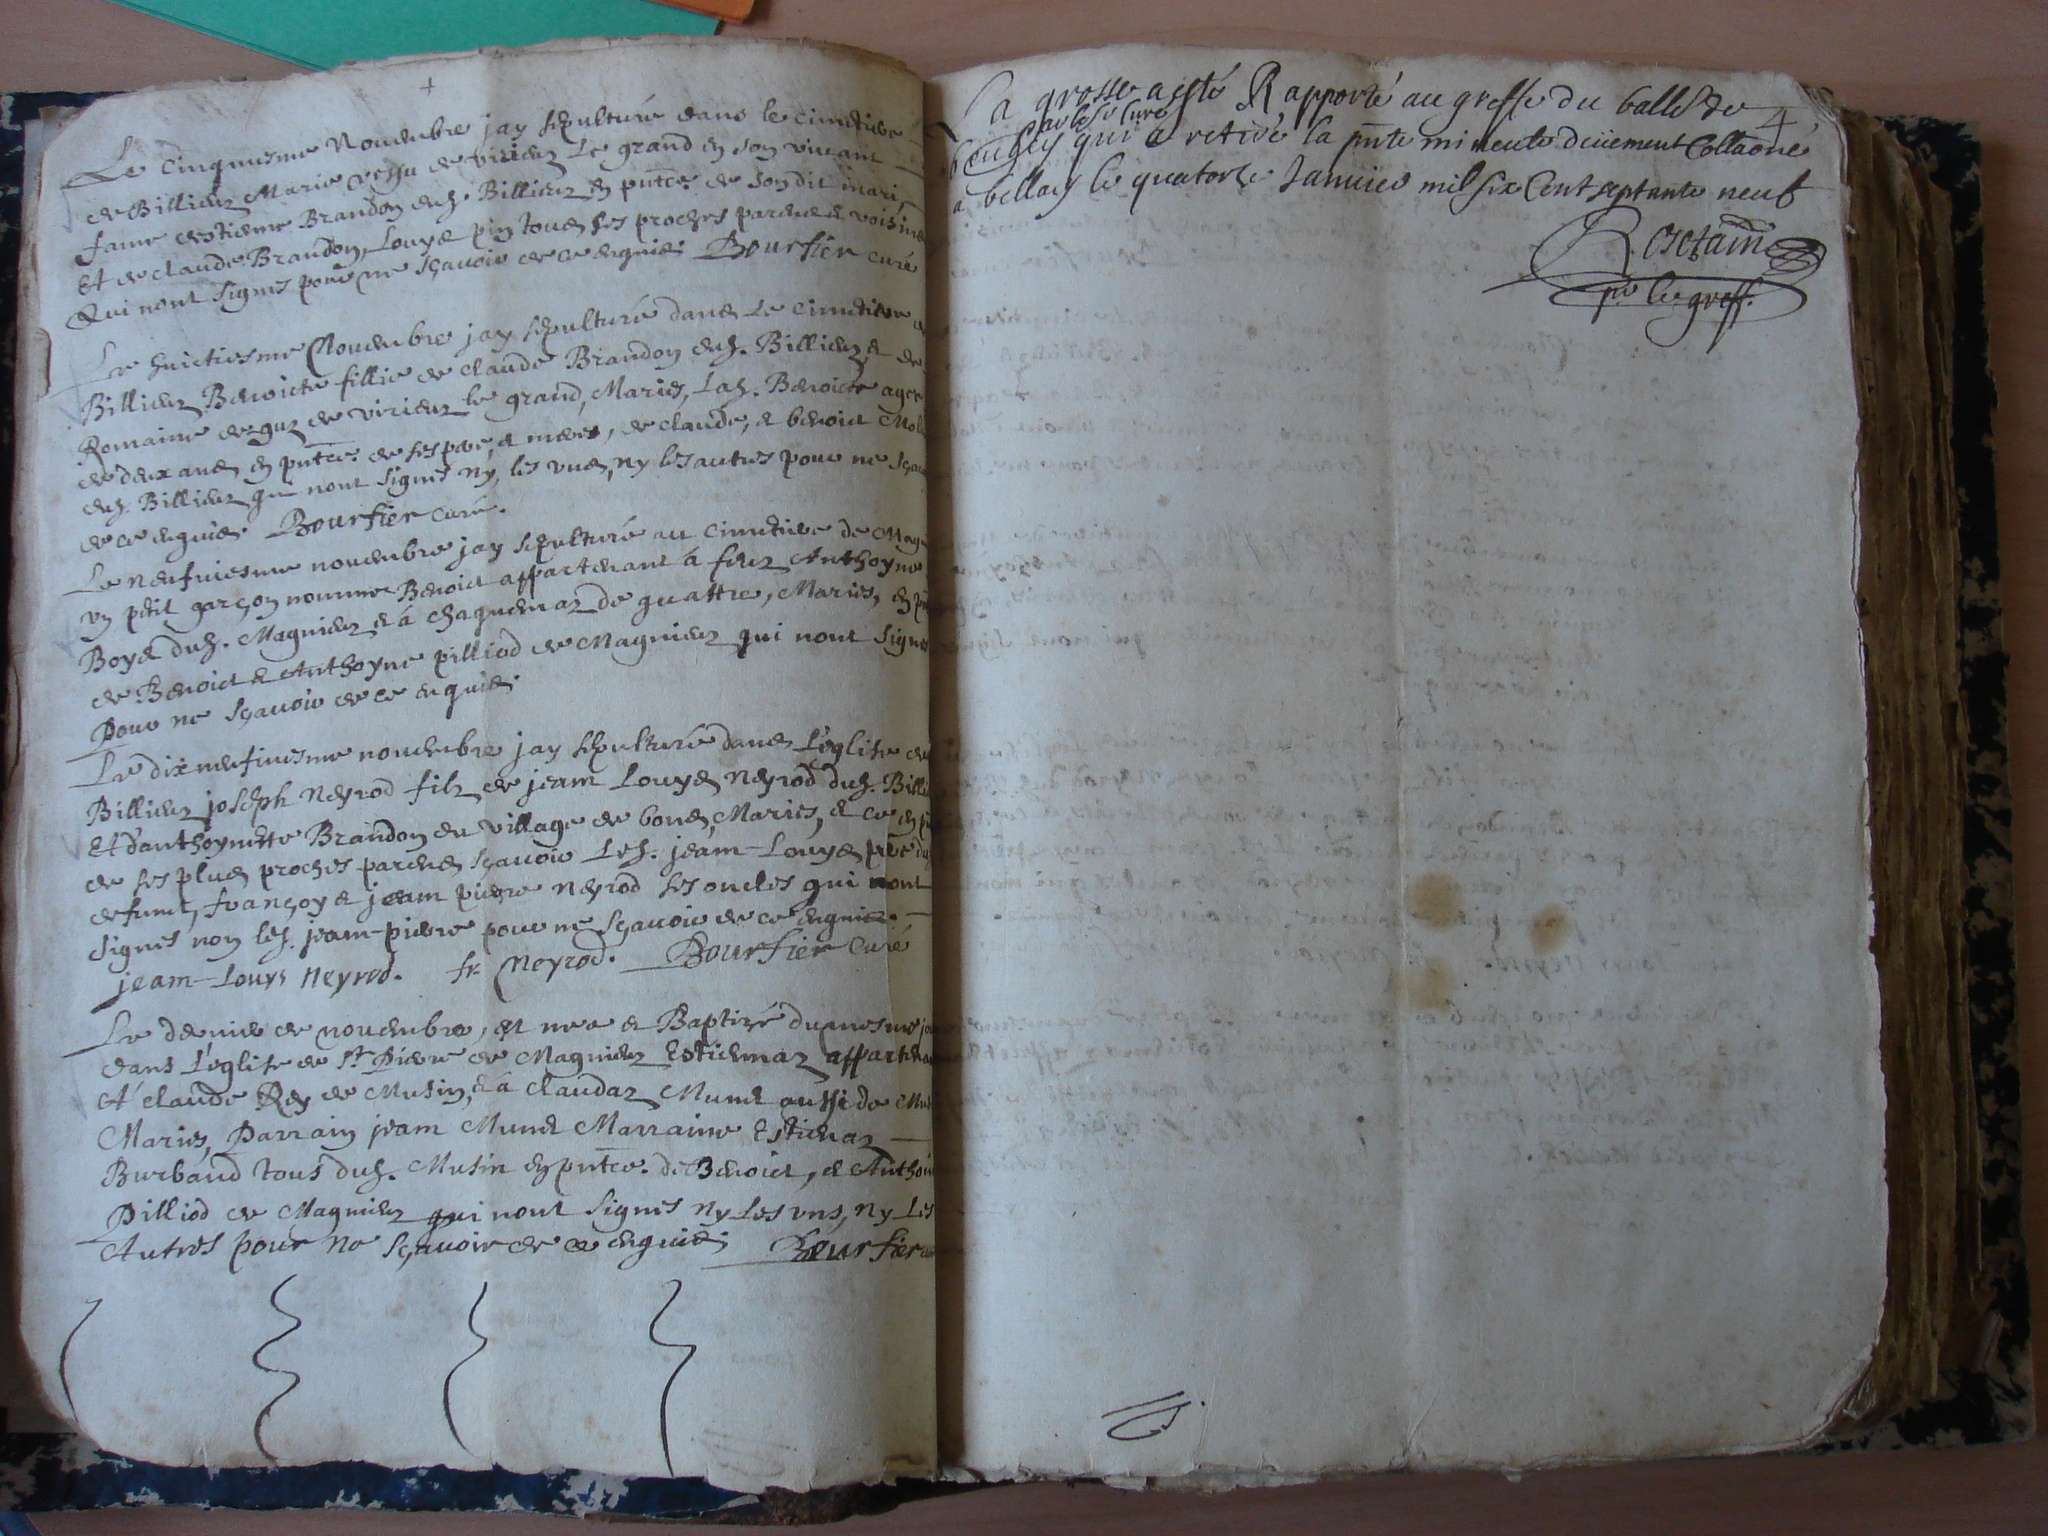 Le cinquiesme Novembre jay sepulturé dans le cimetiere
de Billieux Marie vessu de virieux Le grand en son vivant
fame destienne Brandon dud. Billieux en pntce. de sondit mari,
Et de claude Brandon, Louys pin tous ses proches parens & voisins
Qui nont signes pour ne sçavoir de ce enquis. Bourfier curé
Le huictiesme Novembre jay sepulturé dans Le cimetiere de
Billieux Benoicte fillie de claude Brandon dud. Billieux & de
Romaine de guz de virieux le grand, Maries, Lad. Benoicte agee
de deux ans en pntce. de ses pere, & mere, de claude, & benoict
dud. Billieux qui nont signes ny, les uns, ny les autres pour ne
de ce enquis. Bourfier curé.
Le neufviesme novembre jay sepulturé au cimetiere de
un petit garçon nomme Benoict appartenant á feuz Anthoyne
Boys dud. Magnieux & á chaquenaz de quattre, Maries, en
de Benoict & Anthoyne pilliod de Magnieux qui nont signes
Pour ne sçavoir de ce enquis.
Le dixneufviesme novembre jay sepulturé dans L'eglise de
Billieux joseph Neyrod filz de jeam Louys Neyrod dud.
Et d'anthoynette Brandon du village de bons, Maries, & ce en
de ses plus proches parens sçavoir Led. jeam-Louys pere du
defunct, françoys & jeam pierre Neyrod ses oncles qui nont
signes non led. jeam-pierre pour ne sçavoir de ce enquis.
jeam-Louys Neyrod. fr. Neyrod. Bourfier Curé
Le dernier de novembre, est nee & Baptizé dumesme
dans L'eglise de St. Pierre de Magnieux Estienaz
A' claude Rey de Musin, & á claudaz Munet aussi de
Maries, Parrain jeam Munet Marraine Estienaz
Burband tous dud. Musin en pntce. de Benoict, &
Pilliod de Magnieux qui nont signes ny Les uns, ny Les
Autres pour ne sçavoir de ce enquis. Bourfier
4
La grosse a esté Rapporté au greffe du balle de
par led. sr curé
beugey qui a retiré la pnte mineute deüement Collaoné
a bellay le quatorze Januier mil six Cent septante neuf
pr le greff.